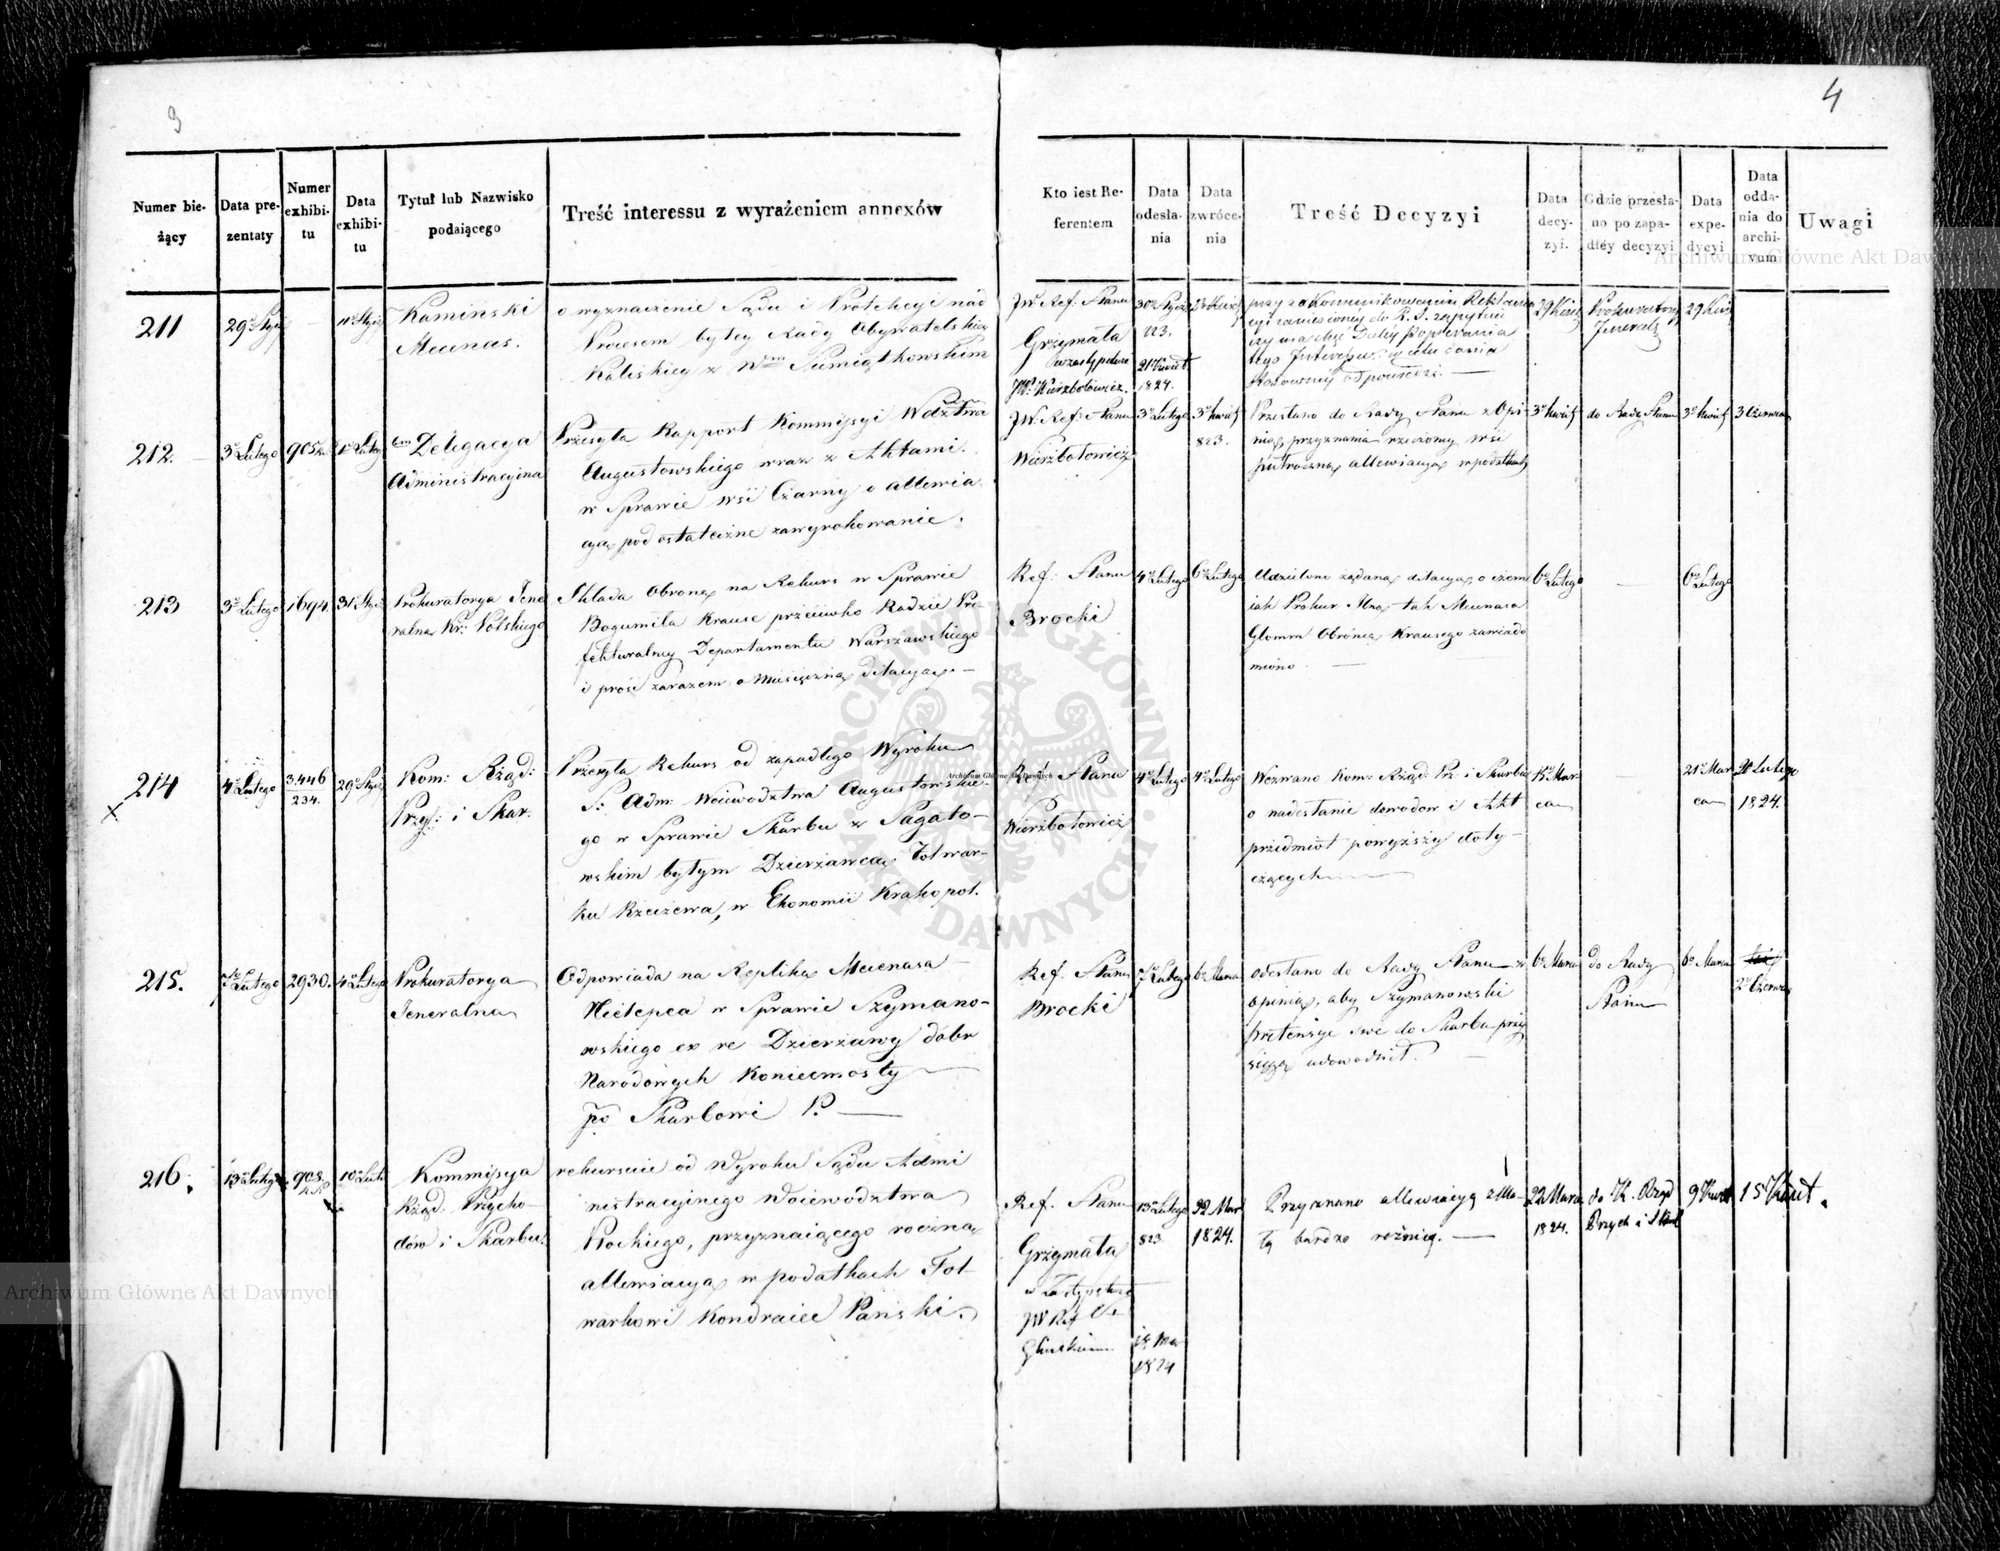 3
4
Numer bie-
żący
Data pre-
zentaty
Numer
exhibi-
tu
Data
exhibi-
tu
Tytuł lub Nazwisko
podaiącego
Treść interessu z wyrażeniem annexów
Kto iest Re-
ferentem
Data
odesła-
nia
Data
zwróce-
nia
Treść Decyzyi
Data
decy-
zyi.
Gdzie przesła-
no po zapa-
dłéy decyzyi
Data
expe-
dycyi
Data
odda-
nia do
archi-
vum
Uwagi
211
Kamiński
Mecenas.
o wyznaczenie Sądu i Protekcyi nad
Procesem byłey Rady Obywatelskiey
Kaliskiey z Sumiątkowskim
JW. Ref: Stanu
Grzymała
w zastępstwie
JW. Wierzbołowicz.
823.
1824.
Prokuratoryi
Jeneralney
212.
3o Lutego
Delegacya
Administracyina
Przesyła Rapport Kommissyi Wdztwa
Augustowskiego wraz z Aktami
w Sprawie wsi Czarny o allewia-
cyą pod ostateczne zawyrokowanie.
JW. Ref: Stanu
Wierzbołowicz
3o Lutego
823.
Przesłano do Rady Stanu z Opi-
nią przyznania rzeczoney wsi
allewiacyą w podatkach
do Rady Stanu
3 Czerwca
213
3o Lutego
1694.
Prokuratorya Jene-
ralna Kr: Polskiego
Składa Obronę na Rekurs w Sprawie
Bogumiła Krause przeciwko Radzie Pre-
fekturalney Departamentu Warszawskiego
i prosi zarazem o miesięczną dilacyą. —
Ref: Stanu
Brocki
4o Lutego
6o Lutego
Udzielono żądaną dilacyą o czem
iak Prokur: tak Mecenasa
Obrońcę Krausego zawiado-
miono.
6o Lutego
6o Lutego
214
x
4o Lutego
3.446
234.
Kom: Rząd:
Przy: i Skar:
Przesyła Rekurs od zapadłego Wyroku
S: Adm: Woiewodztwa Augustowskie-
go w Sprawie Skarbu z Pagato-
wskim byłym Dzierżawcą Folwar-
ku Rzeczewa, w Ekonomii Krakopol.
Ref: Stanu
Wierzbołowicz
4o Lutego
4o Lutego
Wezwano Kom: Rząd: Prz: i Skarbu
o nadesłanie dowodow i Akt
przedmiot powyższy doty-
czących
15o Mar-
ca
21o Mar-
ca
1824
215.
7o Lutego
2930.
4o Lutego
Prokuratorya
Jeneralna
Odpowiada na Replikę Mecenasa
Nielepca w Sprawie Szymano-
wskiego ex re Dzierżawy dóbr
Narodowych Koniecmosty
po Skarbowi P. —
Ref: Stanu
Brocki
7o Lutego
6o Marca
odesłano do Rady Stanu z
opinią, aby Szymanowski
pretensye swe do Skarbu przy-
sięgą udowodnił.
6o Marca
do Rady
Stanu
6o Marca
2o Czerwca
216.
13o Lutego
908.
Kommissya
Rząd. Przycho-
dów i Skarbu.
rekursuie od Wyroku Sądu Admi-
nistracyinego Woiewodztwa
Płockiego, przyznaiącego roczną
allewiacyą w podatkach Fol-
warkowi Kondraiec Pański.
Ref. Stanu
Grzymała
w Zastępstwie
JW Ref
13o Lutego
823
1824
22 Mar
1824.
Przyznano allewiacyą z ma-
łą bardzo rożnicą. —
22 Marca
1824.
do K. Rząd
Przych i Skar
9 Kwiet
15 Kwiet.
Archiwum Główne Akt Dawnych
Archiwum Główne Akt Dawnych
Archiwum Główne Akt Dawnych
ARCHIWUM GŁÓWNE AKT DAWNYCH